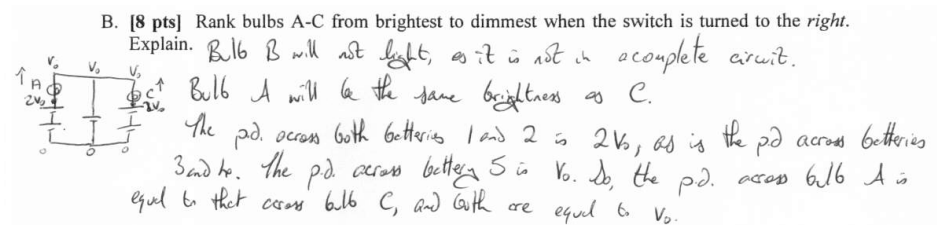 B. [8 pts] Rank bulbs A-C from brightest to dimmest when the switch is turned to the right.
Explain. Bulb B will not light, as it is not in a complete circuit.
V₀ V₀ V₀
↑ A C ↑
2V₀ 2V₀
Bulb A will be the same brightness as C.
The pd. across both batteries 1 and 2 is 2V₀, as is the pd across batteries
3 and 4. The p.d. across battery 5 is V₀. So, the p.d. across bulb A is
equal to that across bulb C, and both are equal to V₀.
0 0 0